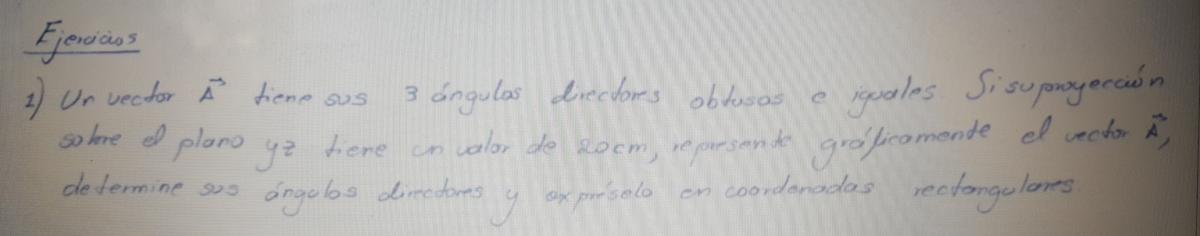 Ejercicios
1) Un vector A⃗ tiene sus 3 ángulos directores obtusos e iguales. Si su proyección
sobre el plano yz tiene un valor de 20cm, represente gráficamente el vector A⃗,
determine sus ángulos directores y expréselo en coordenadas rectangulares.